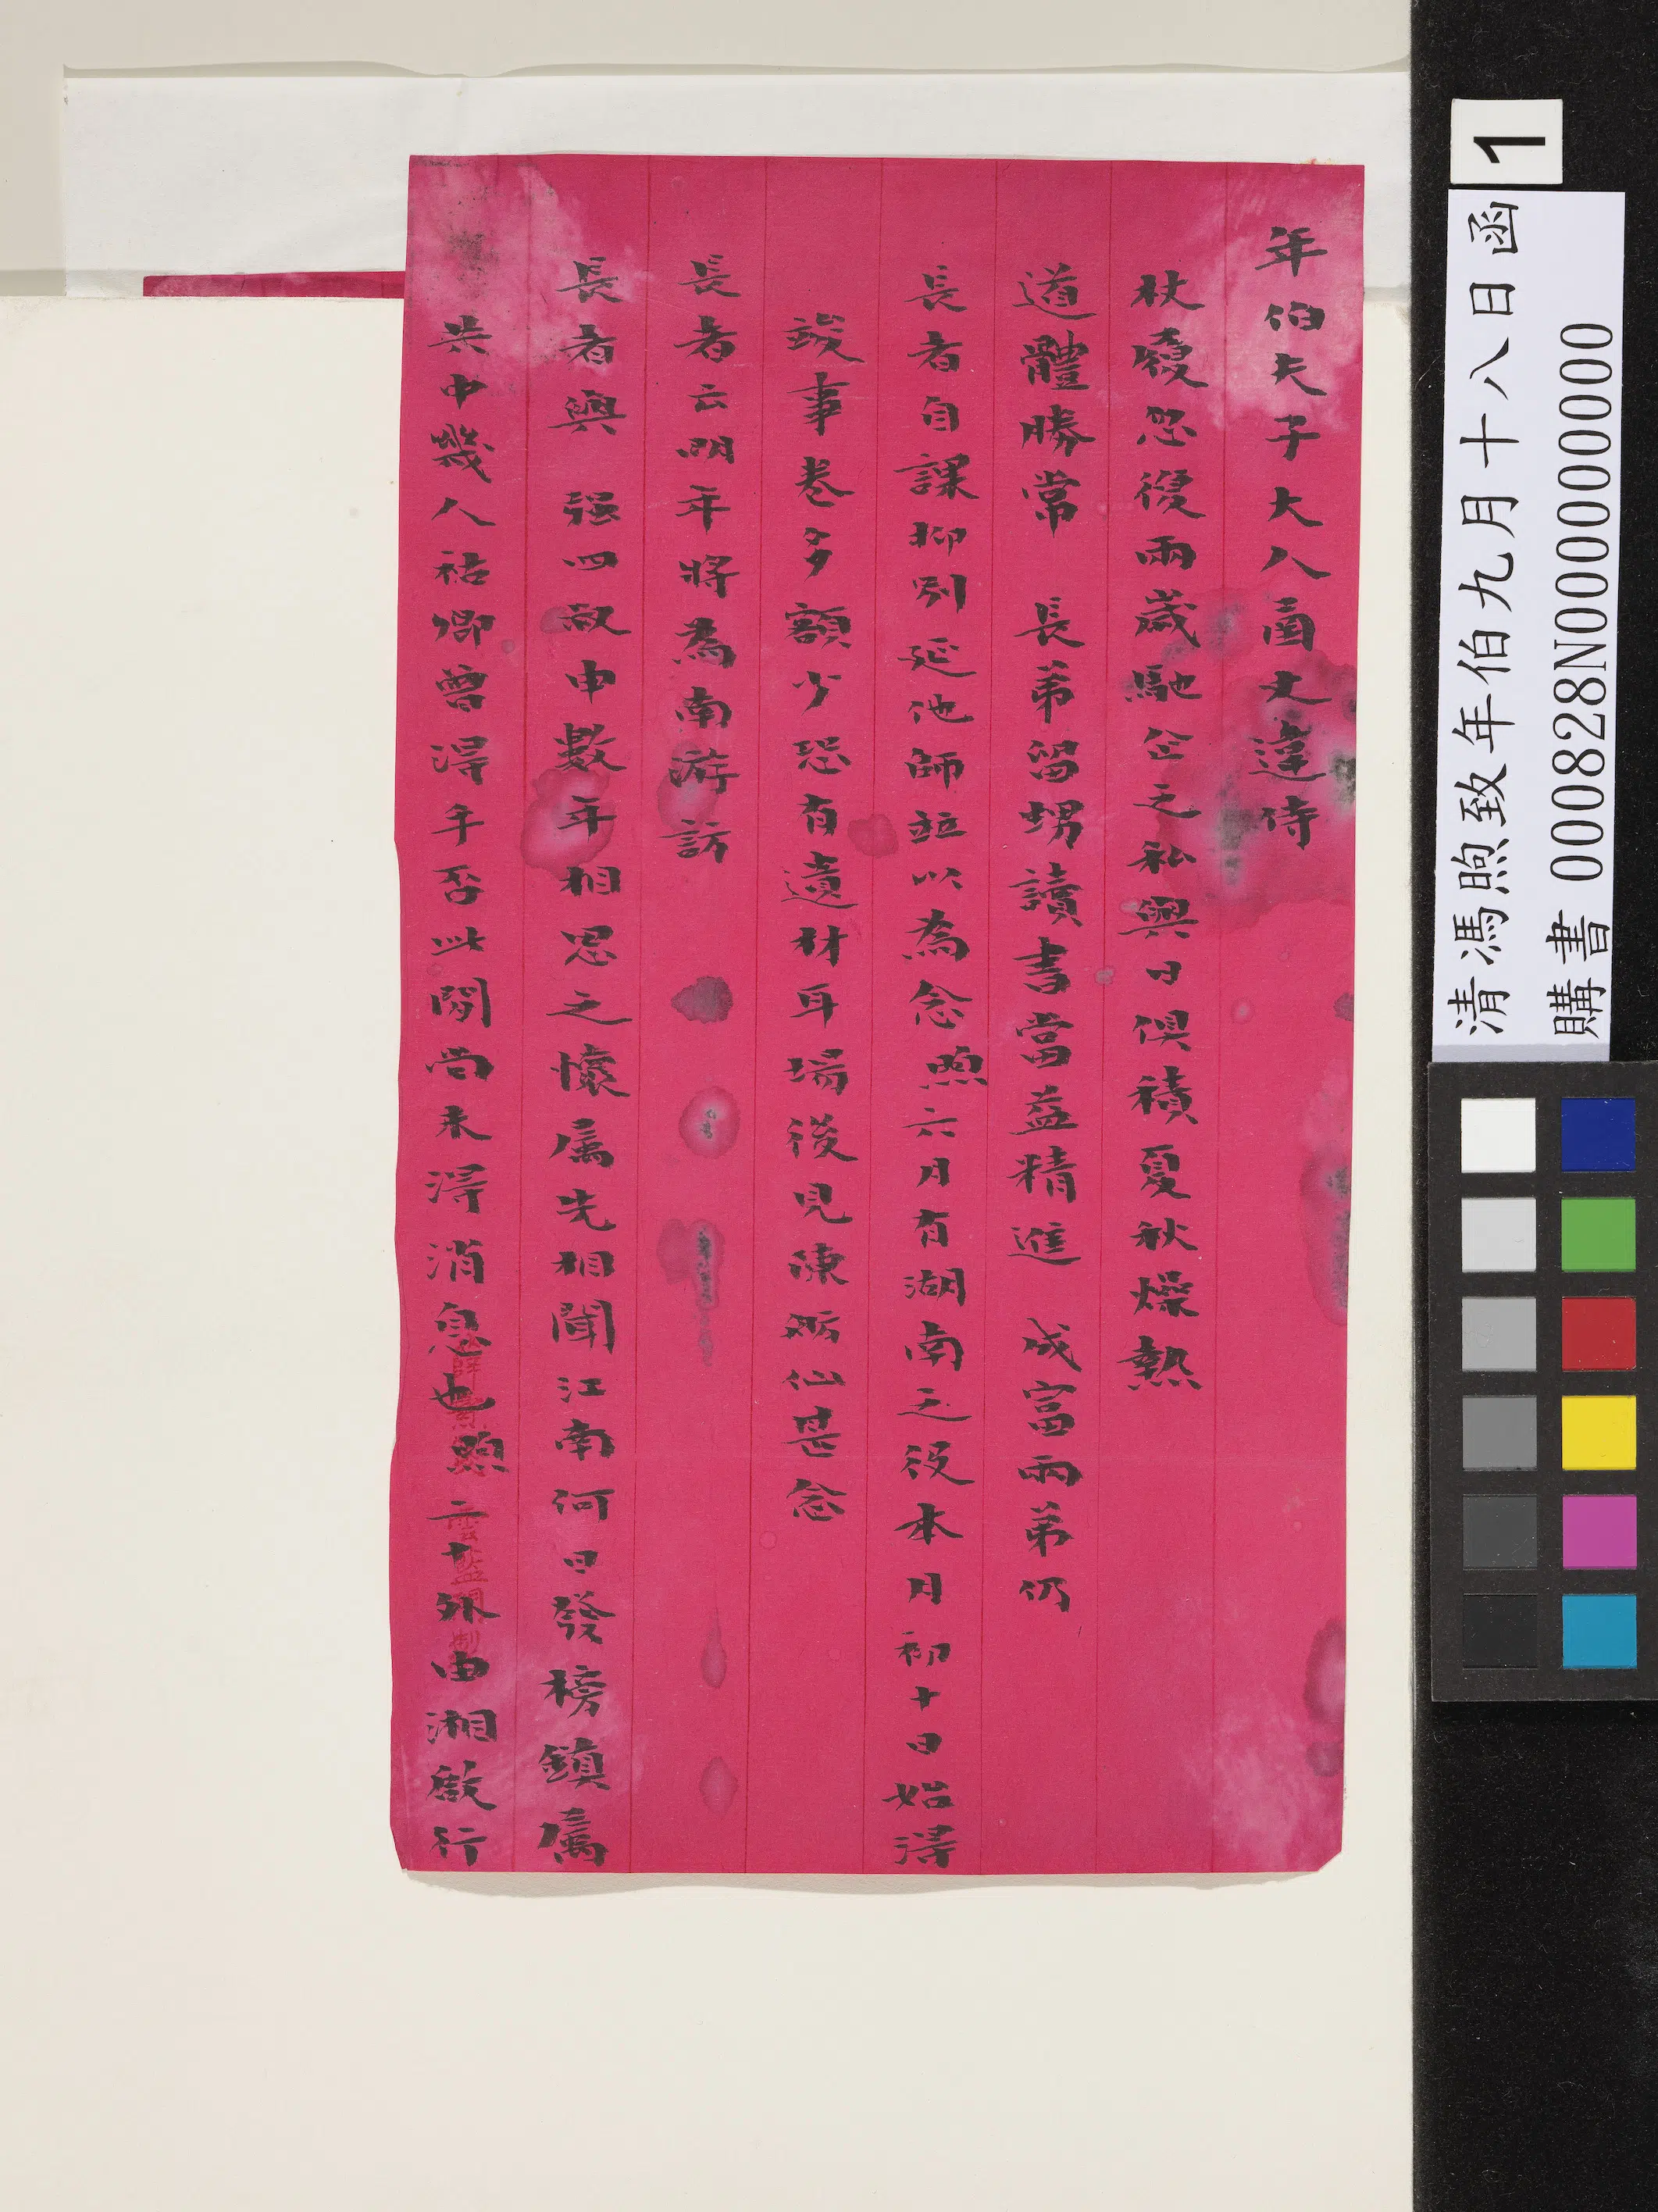 年伯夫子大人函丈違侍
杖履忽復兩歲馳企之私與日俱積夏秋燥熱
道體勝常 長弟留甥讀書當益精進 成富兩弟仍
長者自課抑別延他師並以為念煦六月有湖南之役本月初十日始得
竣事卷多額少恐有遺材耳場後見陳妢仙甚念
長者云明年將為南游訪
長者與 强四叔申數年相思之懷属先相聞江南何日發榜鎮属
共中幾人祜卿曾得手否此間尚未得消息也煦二十外由湘啟行
清馮煦致年伯九月十八日函
購書 000828N000000000
1